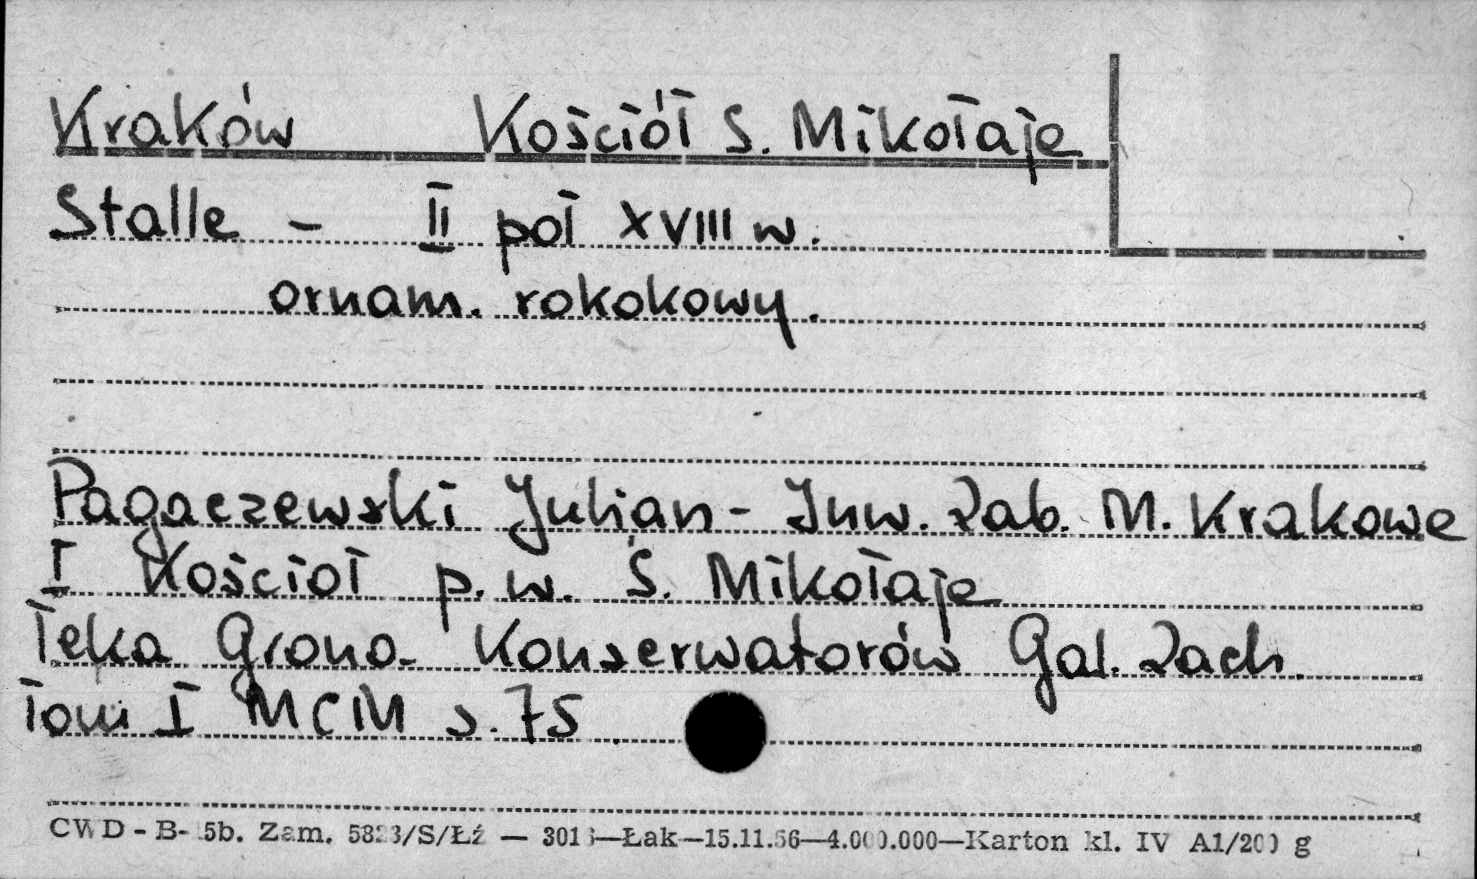 Kraków Kościół S. Mikołaja
Stalle - II poł XVIII w.
ornam. rokokowy.
Pagaczewski Julian - Inw. Zab. M. Krakowa
I Kościoł p.w. Ś. Mikołaja
Teka Grona Konserwatorów Gal. Zach.
Tom I MCM s. 75
CWD - B- 5b. Zam. 5823/S/Łź — —Łak—15.11.56—4.000.000—Karton kl. IV A1/200 g